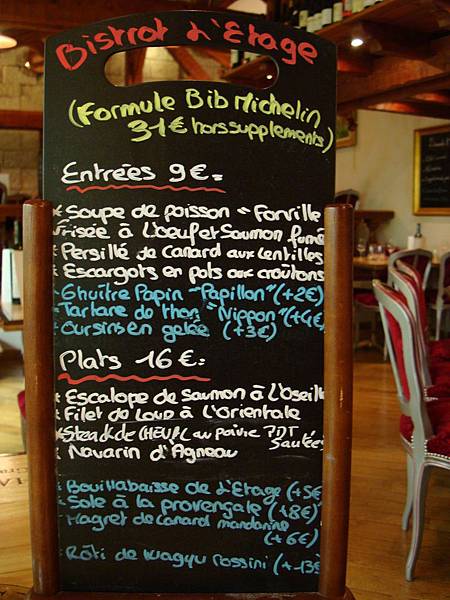 Bistrot d'Etage
(Formule Bib Michelin
31€ hors supplements)
Entrées 9€=
* Soupe de poisson "Fonville
Frisée à L'oeuf et Saumon fumé
* Persillé de Canard aux lentilles
* Escargots en pots aux croûtons
* 6 huître Papin "Papillon" (+2€)
* Tartare de thon "Nippon" (+4€
* Oursins en gelée (+3€)
Plats 16€=
* Escalope de Saumon à L'Oseill
* Filet de Loup à L'Orientale
* Steack de CHEVAL au poivre PDT
Sautées
* Navarin d'Agneau
* Bouillabaisse de L'Etage (+5€
* Sole à la provençale (+8€)
* Magret de Canard mandarine
(+6€)
* Rôti de Wagyu Rossini (+13€